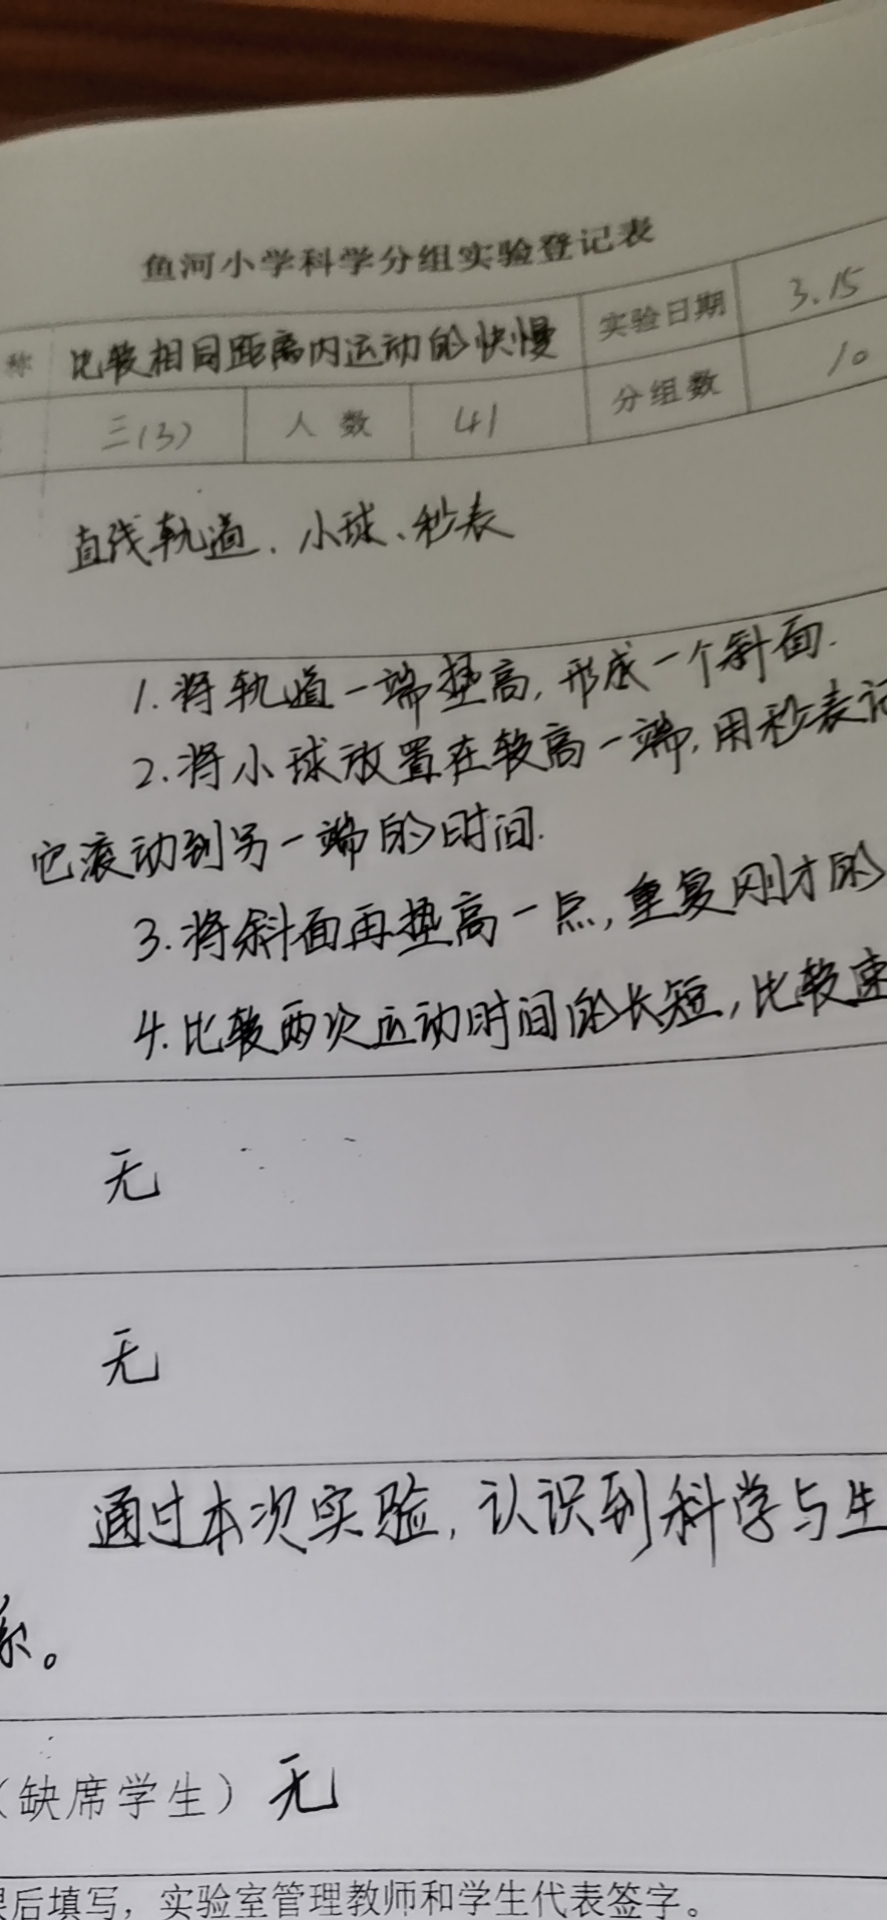 鱼河小学科学分组实验登记表
称 比较相同距离内运动的快慢 实验日期 3.15
三(3) 人数 41 分组数 10
直线轨道、小球、秒表
1.将轨道一端垫高,形成一个斜面.
2.将小球放置在较高一端,用秒表记
它滚动到另一端的时间.
3.将斜面再垫高一点,重复刚才的
4.比较两次运动时间的长短,比较速
无
无
通过本次实验,认识到科学与生
系。
(缺席学生) 无
课后填写，实验室管理教师和学生代表签字。